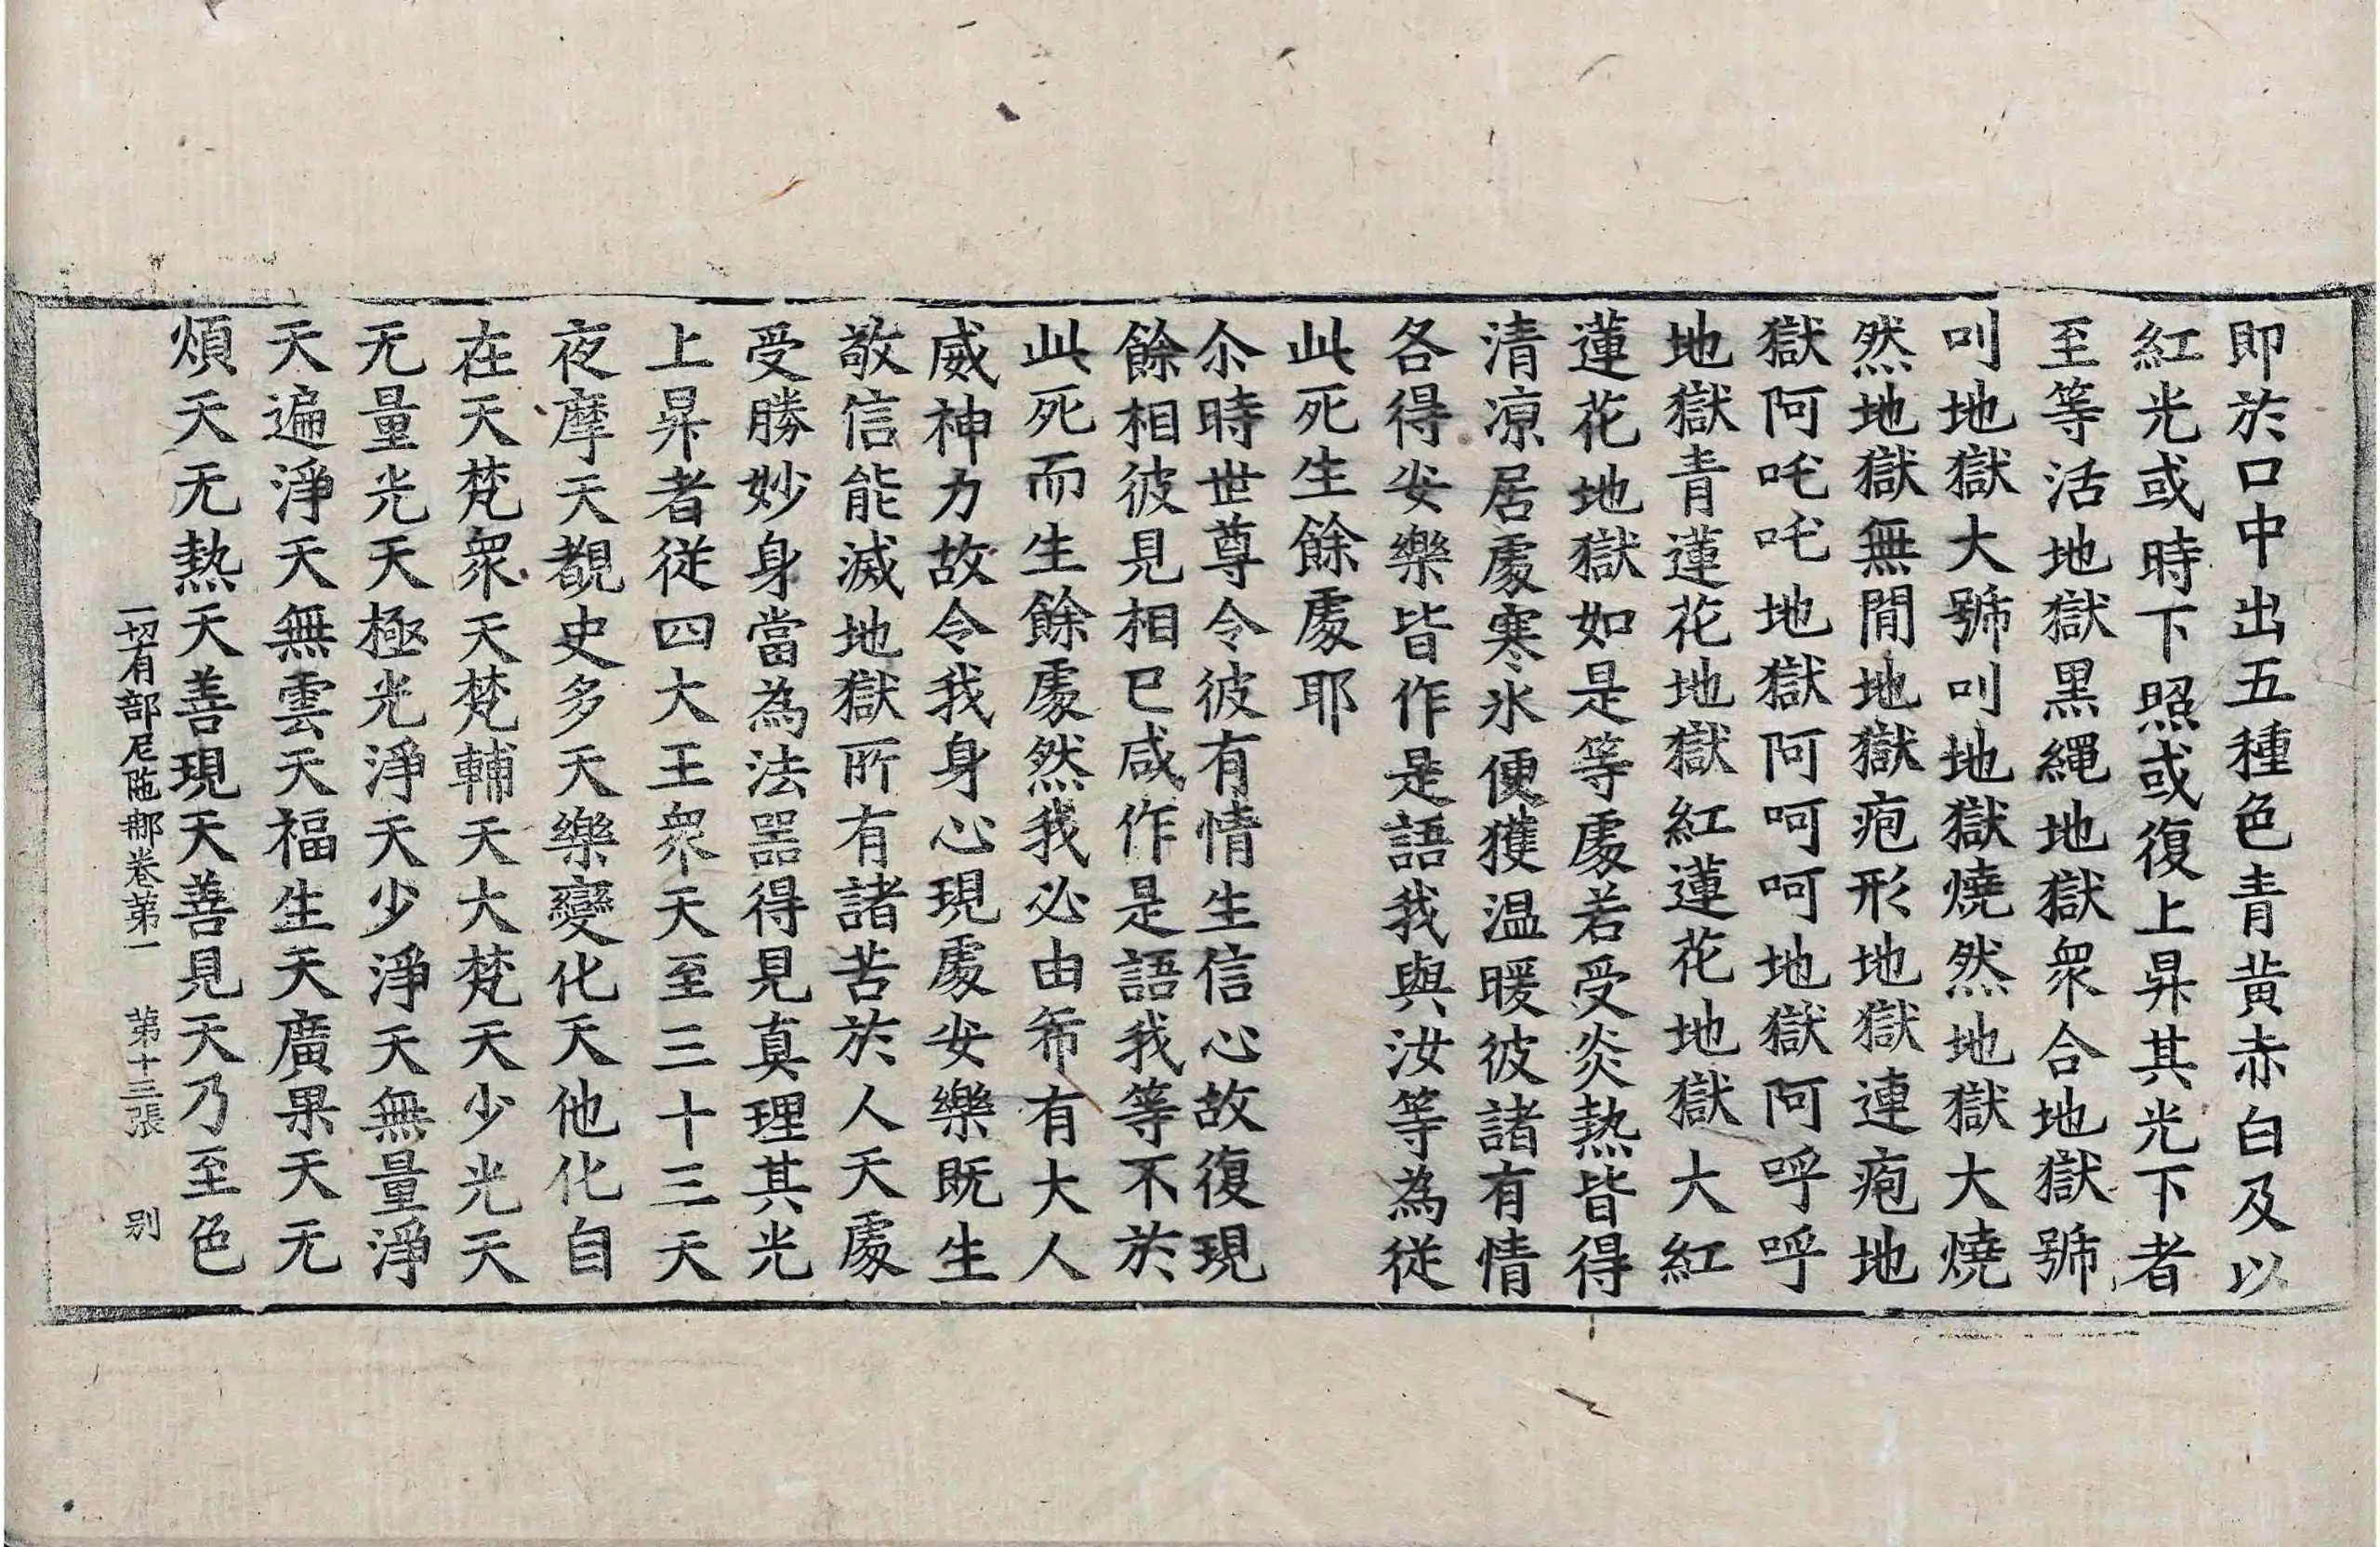 即於口中出五種色青黃赤白及以
紅光或時下照或復上昇其光下者
至等活地獄黑繩地獄衆合地獄號
叫地獄大號叫地獄燒然地獄大燒
然地獄無間地獄疱形地獄連疱地
獄阿吒吒地獄阿呵呵地獄阿呼呼
地獄青蓮花地獄紅蓮花地獄大紅
蓮花地獄如是等處若受炎熱皆得
清涼居處寒氷便獲温暖彼諸有情
各得安樂皆作是語我與汝等為從
此死生餘處耶
尒時世尊令彼有情生信心故復現
餘相彼見相已咸作是語我等不於
此死而生餘處然我必由希有大人
威神力故令我身心現處安樂既生
敬信能滅地獄所有諸苦於人天處
受勝妙身當為法器得見真理其光
上昇者從四大王衆天至三十三天
夜摩天覩史多天樂變化天他化自
在天梵衆天梵輔天大梵天少光天
无量光天極光淨天少淨天無量淨
天遍淨天無雲天福生天廣果天无
煩天无熱天善現天善見天乃至色
一切有部尼陁那卷第一 第十三張 别